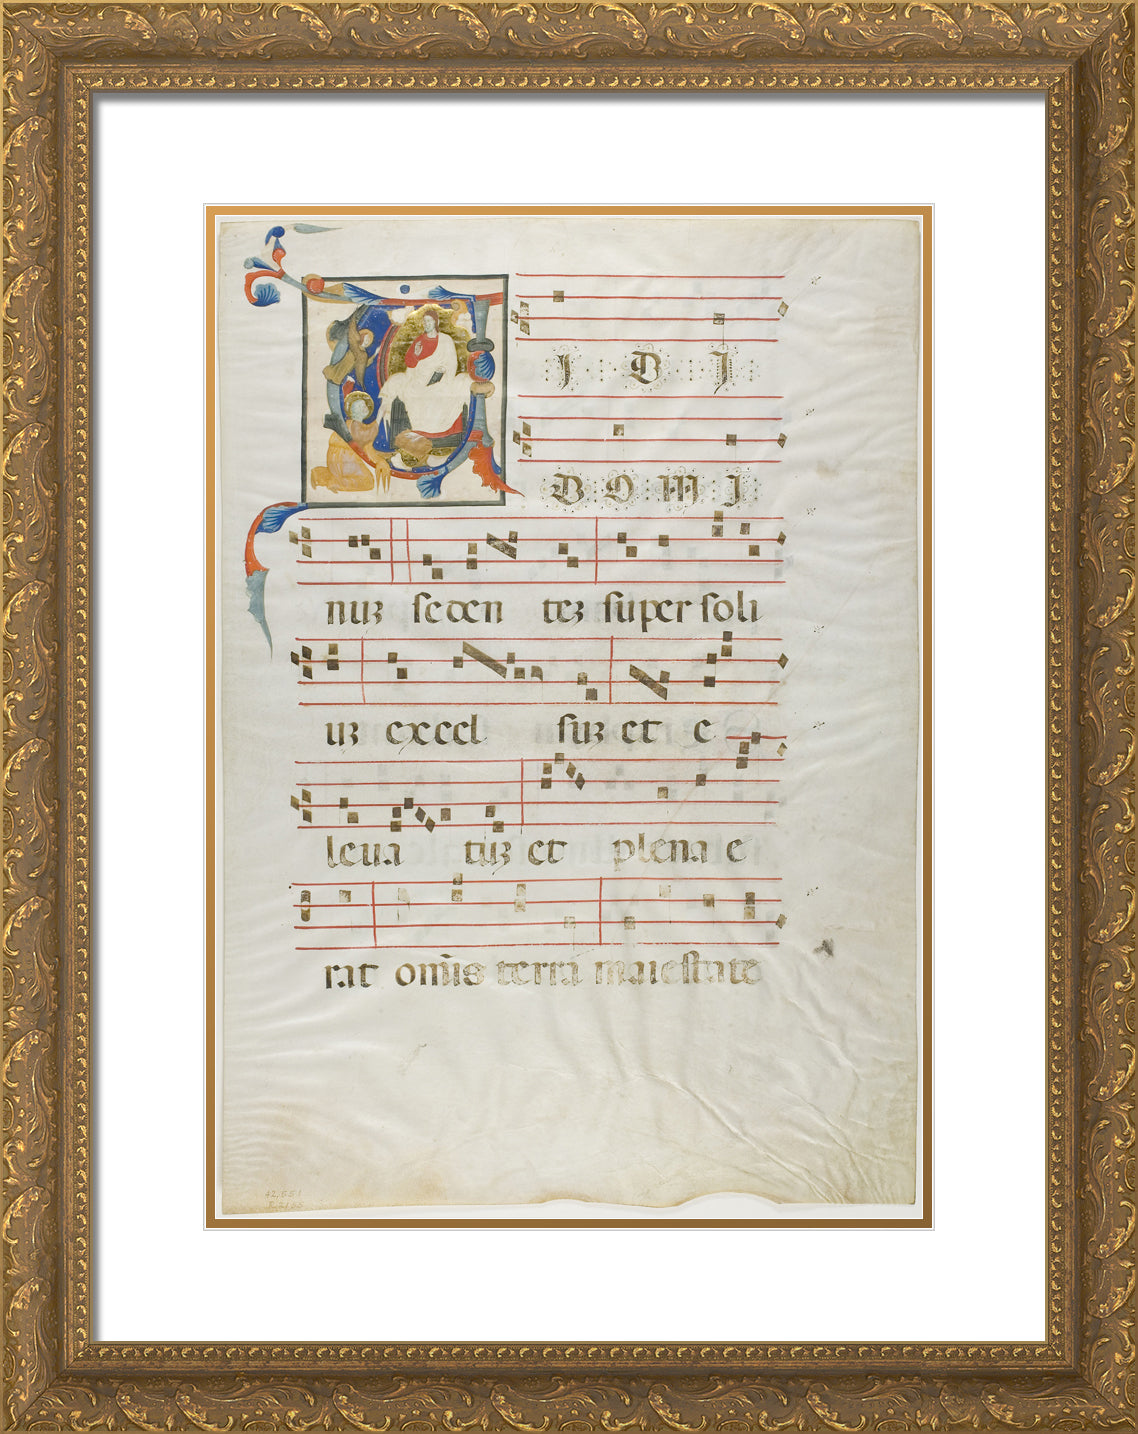 VIDI
DOMI
nus seden tes super soli
um excel sum et e
leva tum et plena e
rat omnis terra maiestate
42.551